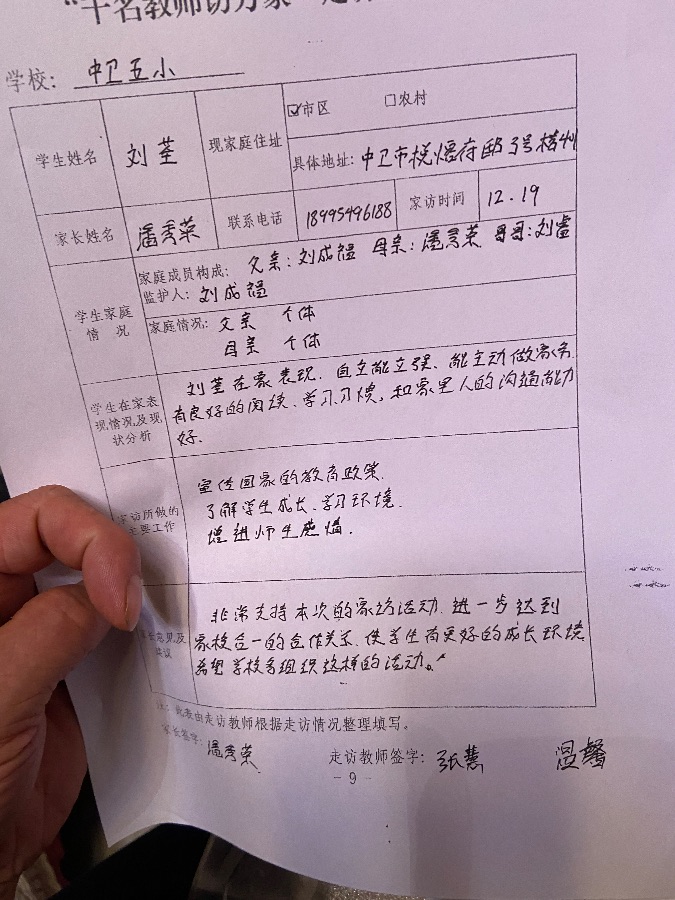 "千名教师访万家"
学校: 中卫五小
学生姓名 刘荃 现家庭住址 ☑市区 □农村
具体地址: 中卫市悦
家长姓名 潘秀荣 联系电话 18995496188 家访时间 12.19
学生家庭情况 家庭成员构成: 父亲:刘成韫 母亲:潘秀荣 哥哥:刘睿
监护人: 刘成韫
家庭情况: 父亲 个体
母亲 个体
学生在家表现情况及现状分析 刘荃在家表现、自立能立强、能主动做家务
有良好的阅读、学习习惯,和家里人的沟通能力
好.
家访所做的主要工作 宣传国家的教育政策.
了解学生成长、学习环境.
增进师生感情.
家长意见及建议 非常支持本次的家访活动、进一步达到
家校合一的合作关系、使学生有更好的成长环境
希望学校多组织这样的活动。
注: 此表由走访教师根据走访情况整理填写。
家长签字: 潘秀荣 走访教师签字: 张慧 温馨
- 9 -